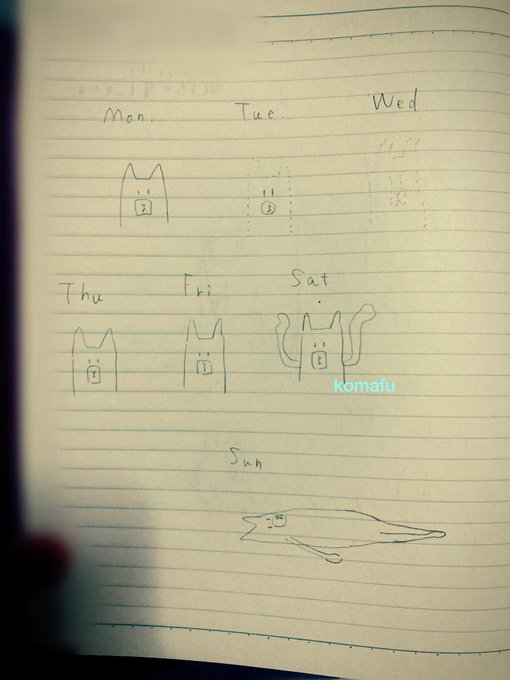 Mon.
Tue.
Wed
Thu
Fri
Sat
komafu
Sun